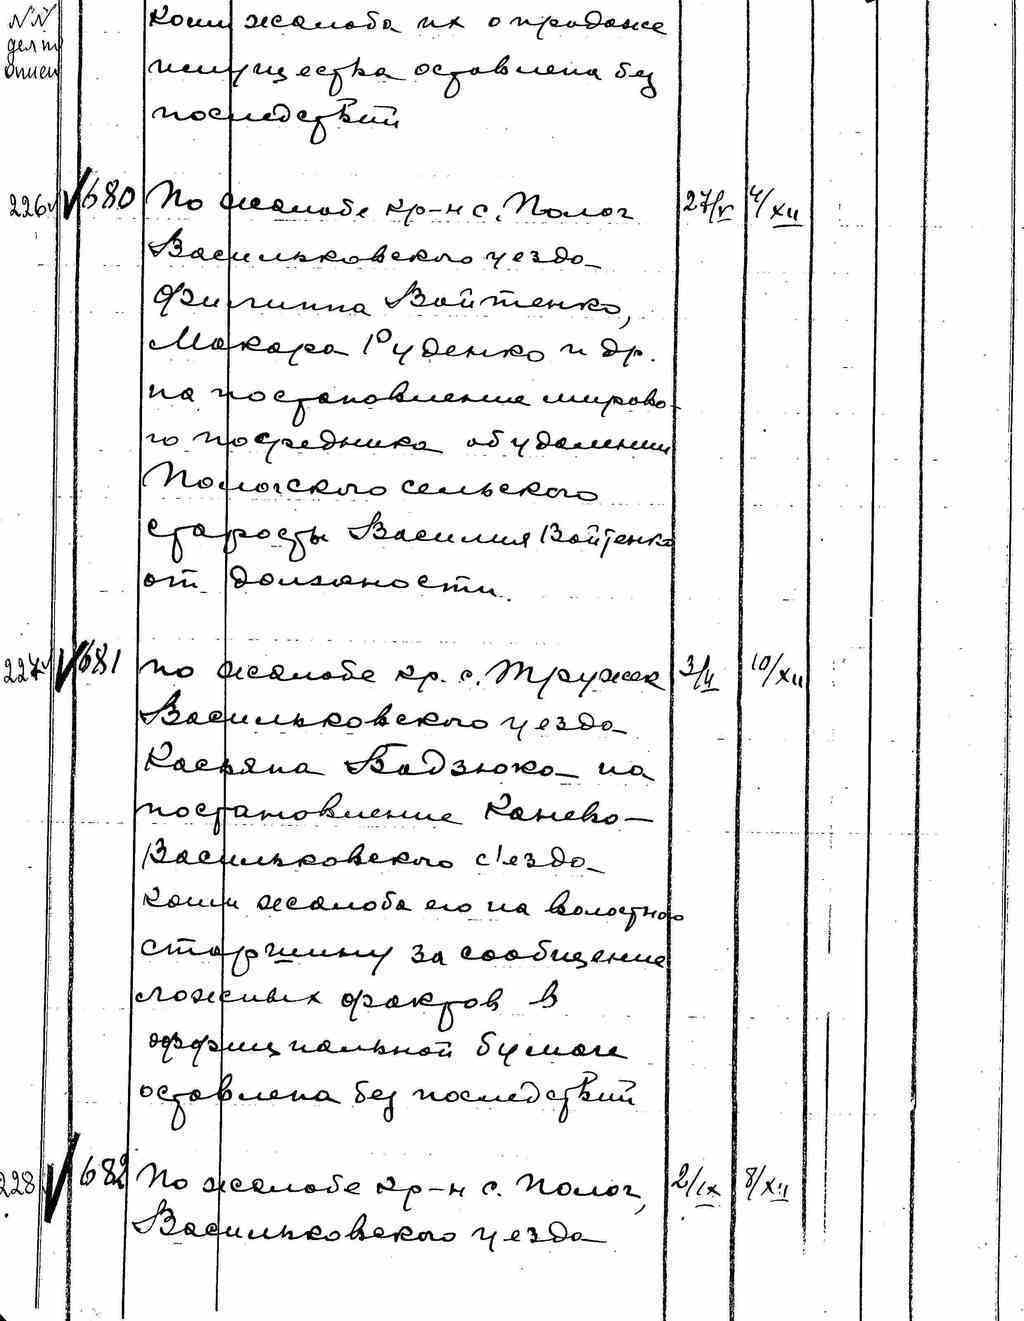 NN
дел по
описи
коим жалоба их о продаже
имущества оставлена без
последствий
226 680 По жалобе кр-н с. Полог 27/V 4/XII
Васильковского уезда
Филиппа Войтенко,
Макара Руденко и др.
на постановление мирово-
го посредника об удалении
Пологского сельского
старосты Василия Войтенко
от должности.
227 681 по жалобе кр. с. Тружек 3/II 10/XII
Васильковского уезда
Касьяна Бадзюка на
постановление Канево-
Васильковского с'езда
коим жалоба его на волостного
старшину за сообщение
ложных фактов в
официальной бумаге
оставлена без последствий
228 682 По жалобе кр-н с. Полог, 2/IX 8/XII
Васильковского уезда